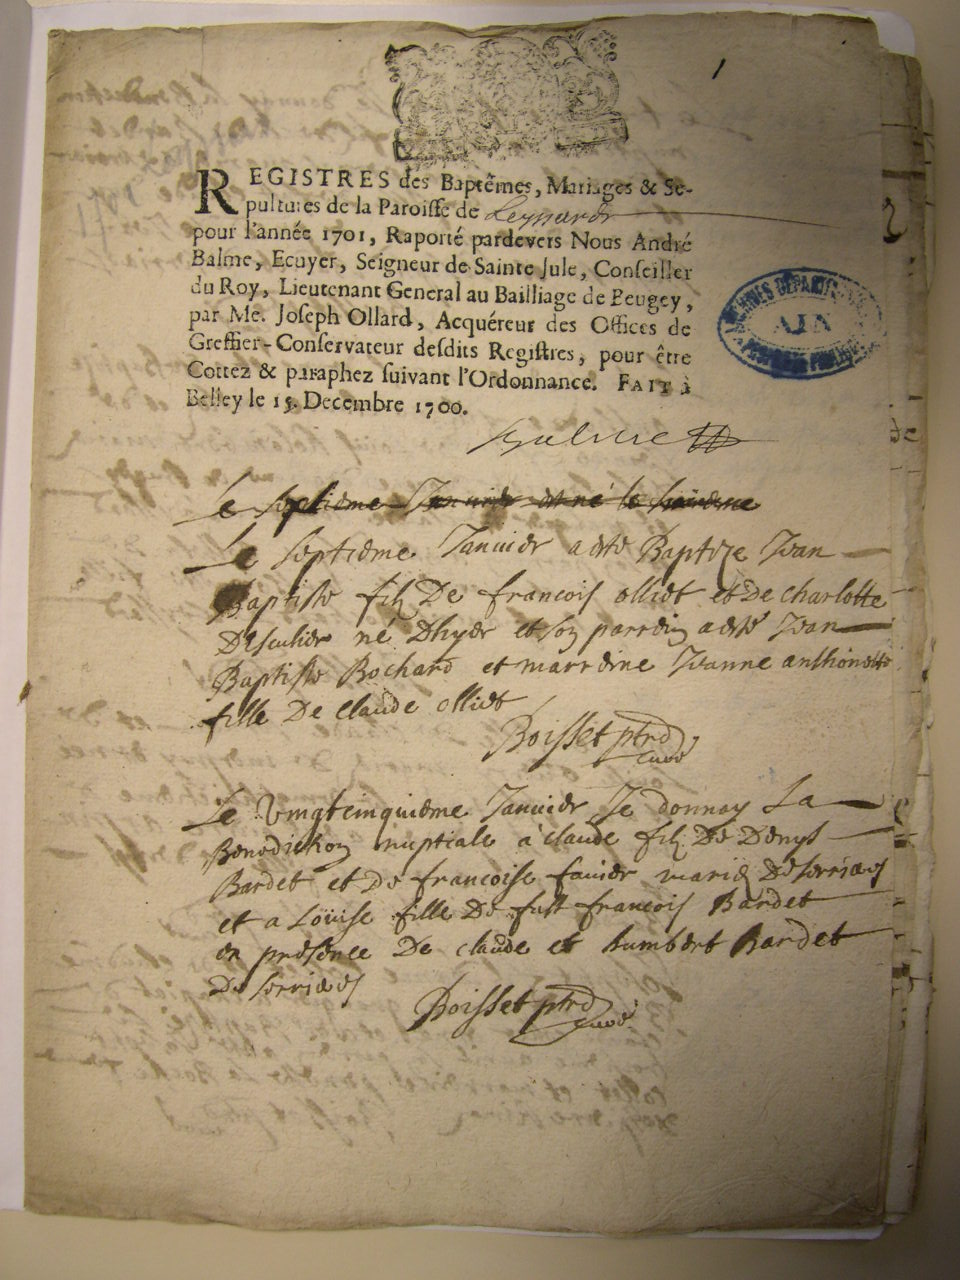 1
REGISTRES des Baptêmes, Mariages & Se-
pultures de la Paroisse de Leyssard
pour l'année 1701, Raporté pardevers Nous André
Balme, Ecuyer, Seigneur de Sainte Jule, Conseiller
du Roy, Lieutenant General au Bailliage de Beugey,
par Me. Joseph Ollard, Acquéreur des Offices de
Greffier-Conservateur desdits Registres, pour être
Cottez & paraphez suivant l'Ordonnance. FAIT à
Belley le 15. Decembre 1700.
ARCHIVES DEPARTEMENTALES
AIN
Balme
Le septieme Janvier est né le
Le septieme Janvier a esté Baptize Jean
Baptiste filz De francois olliet et De charlotte
né Dhyer et son parrein a esté Jean
Baptiste Bochard et marreine Jeanne anthoinette
fille De claude olliet
Boisset ptre
curé
Le vingtcinquieme Janvier Je donnay La
Benediction nuptiale a claude filz De Denys
Bardet et De francoise favier mariez De serrieres
et a Loüise fille De fust francois Bardet
en presence De claude et humbert Bardet
De serrieres
Boisset ptre
curé